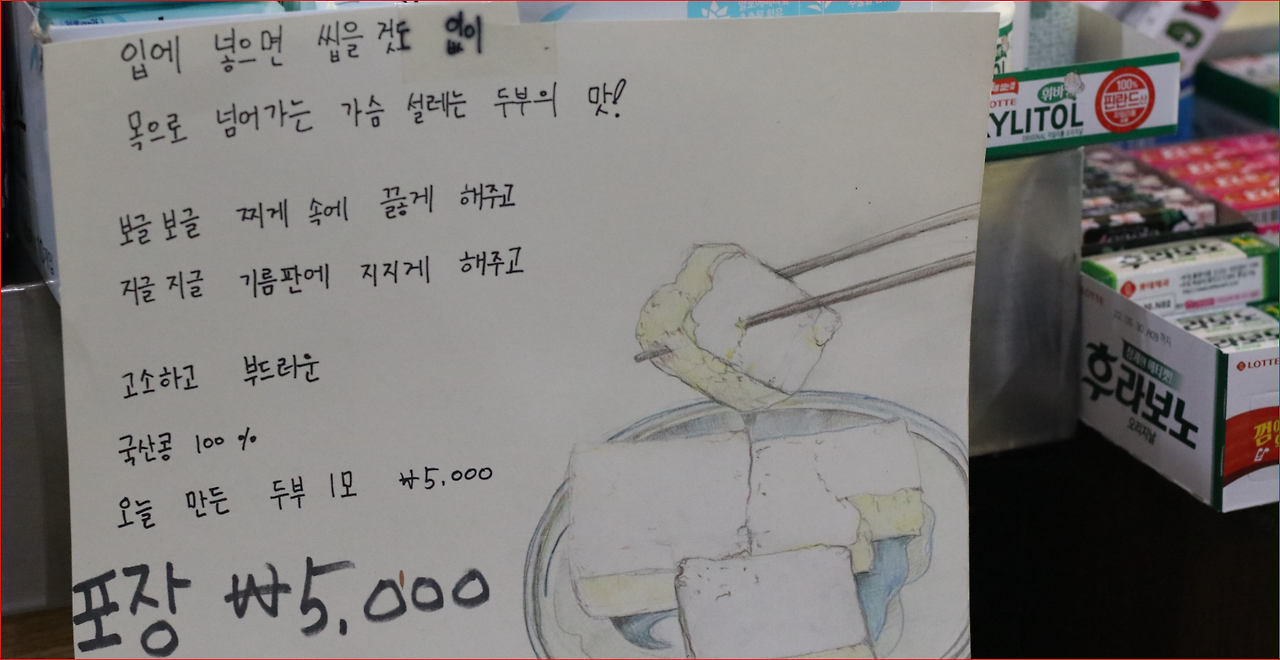 입에 넣으면 씹을 것도 없이
목으로 넘어가는 가슴 설레는 두부의 맛!
보글보글 찌게 속에 끓게 해주고
지글지글 기름판에 지지게 해주고
고소하고 부드러운
국산콩 100%
오늘 만든 두부 1모 ₩5,000
포장 ₩5,000
XYLITOL
100%
핀란드산
롯데제과
LOTTE
후라보노
오리지날
LOTTE